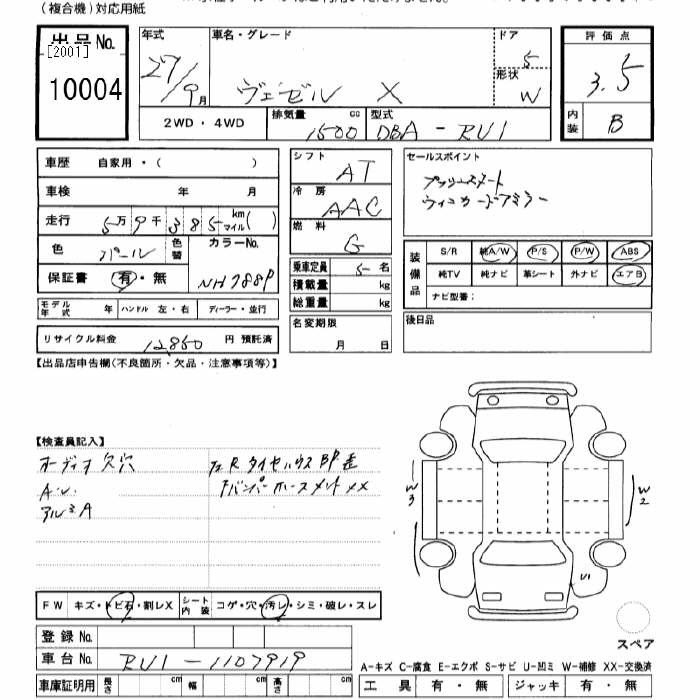 (複合機)対応用紙
出品No.
[2001]
10004
年式 車名・グレード ドア 5
27/9月 ヴェゼル X 形状 W
2WD・4WD 排気量 1500 cc 型式 DBA-RU1
評価点
3.5
内装 B
車歴 自家用・( )
車検 年 月
走行 5万9千385 km マイル( )
色 パール 色替 カラーNo.
保証書 有・無 NH788P
モデル年式 年 ハンドル 左・右 ディーラー・並行
リサイクル料金 12,860 円 預託済
シフト AT
冷房 AAC
燃料 G
乗車定員 5 名
積載量 kg
総重量 kg
名変期限
月 日
セールスポイント
プッシュスタート
ウィンカードアミラー
装備品 S/R 純A/W P/S P/W ABS
純TV 純ナビ 革シート 外ナビ エアB
ナビ型番:
後日品
【出品店申告欄(不良箇所・欠品・注意事項等)】
【検査員記入】
オーディオ欠穴
A・U
アルミA
FW キズ・トビ石・割レX シート内装 コゲ・穴・汚レ・シミ・破レ・スレ
登録No.
車台No. RU1-1107919
車庫証明用 長さ cm 幅 cm 高さ cm
W3
W2
U1
スペア
A-キズ C-腐食 E-エクボ S-サビ U-凹ミ W-補修 XX-交換済
工具 有・無 ジャッキ 有・無